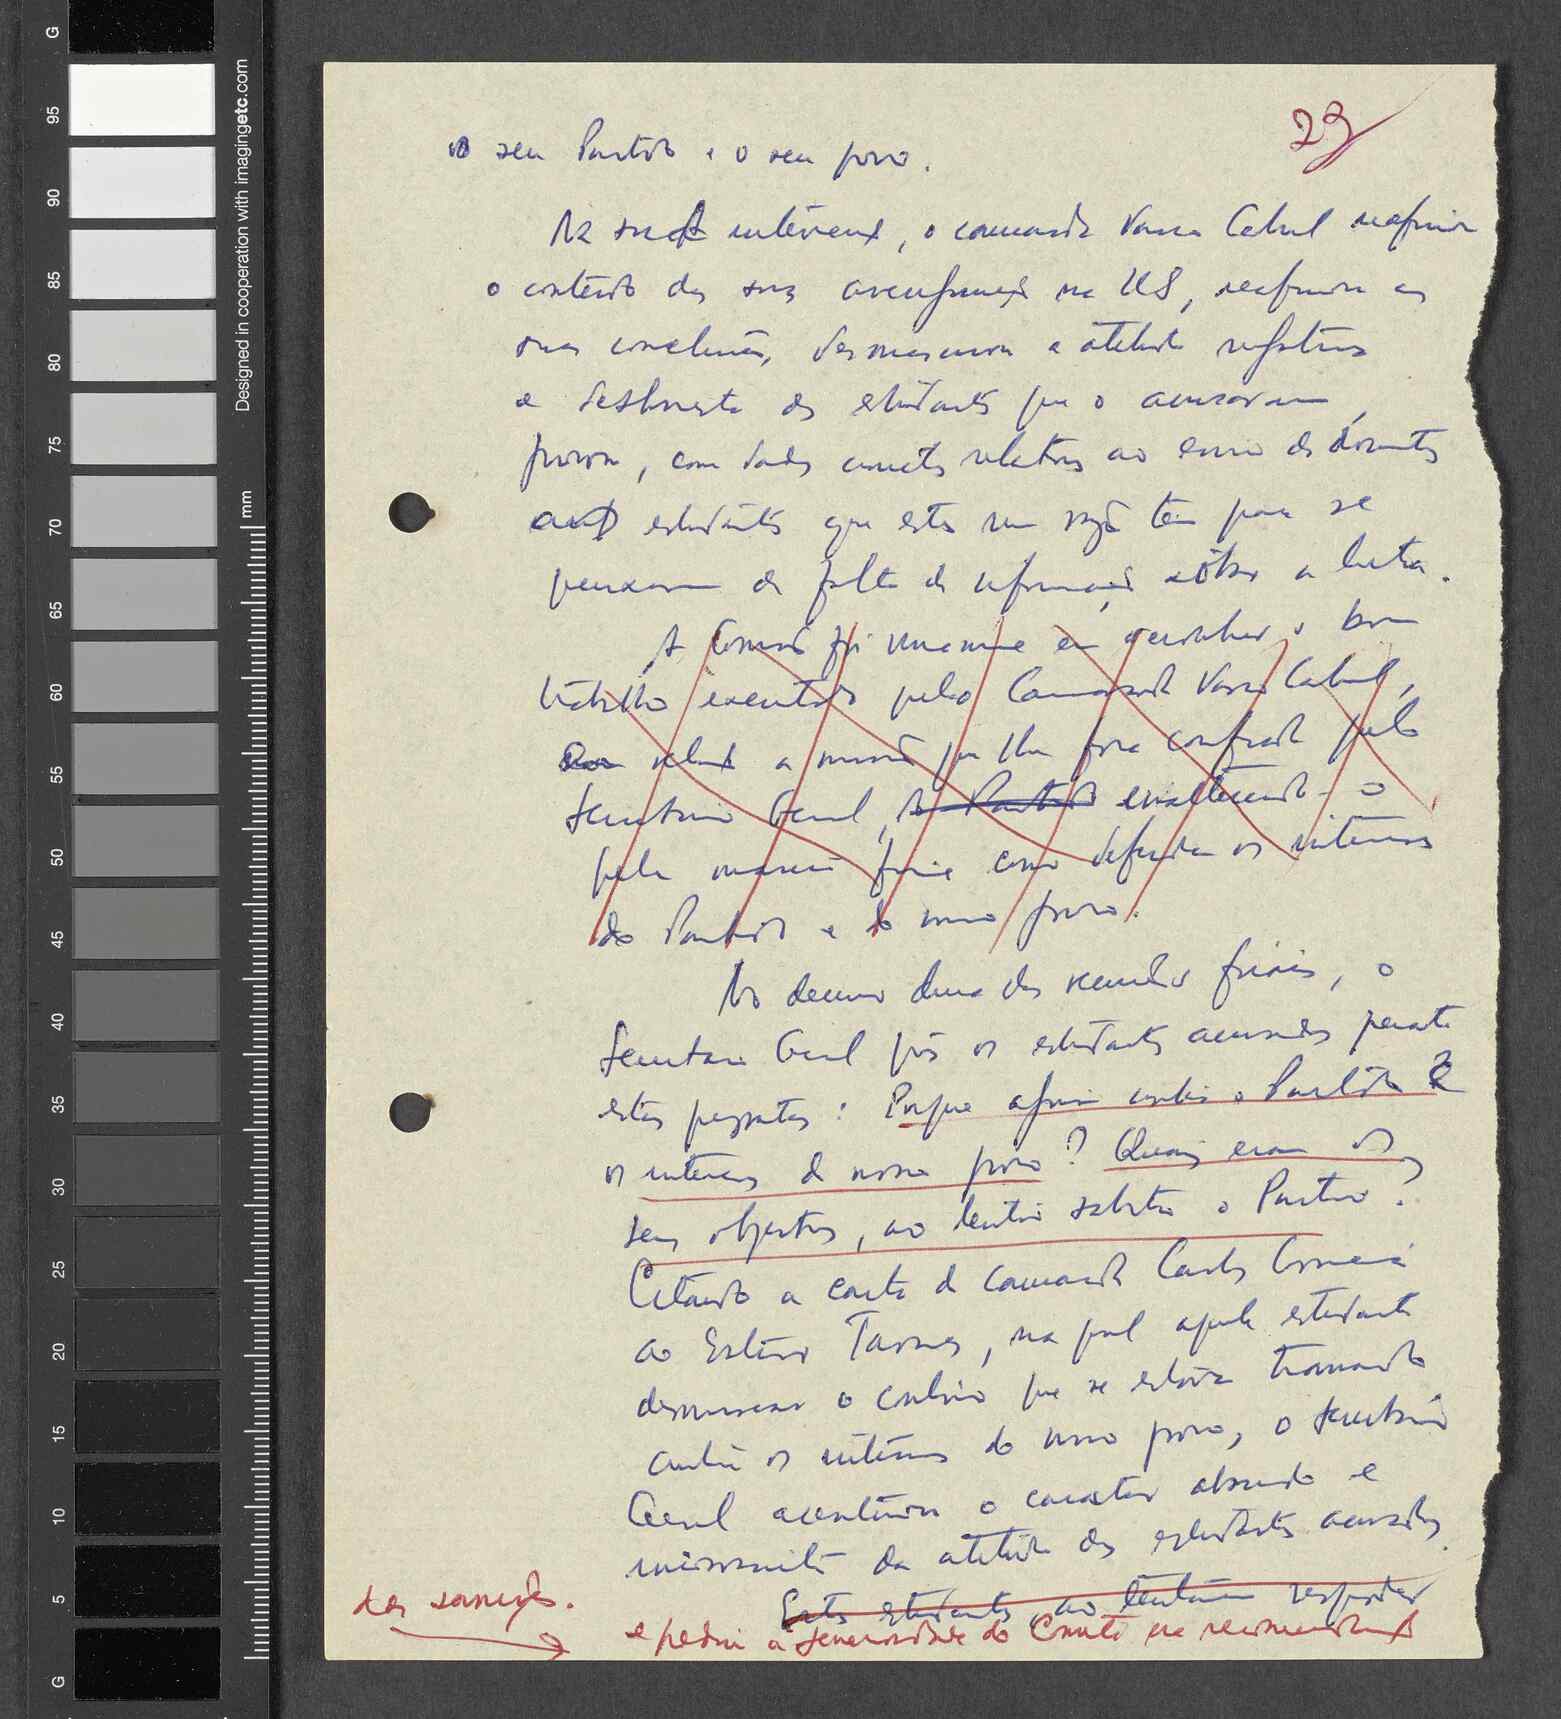 23
o seu Partido e o seu povo.
Na sua intervenção, o camarada Vasco Cabral reafirmou
o conteúdo das suas na US, reafirmou as
suas conclusões, desmascarou a atitude
e desonesta dos estudantes que o acusaram,
provou, com dados concretos relativos ao envio de documentos
aos estudantes que estes nem razão têm para se
queixarem de falta de informação sôbre a luta.
A Comissão foi unanime em reconhecer o bom
trabalho executado pelo Camarada Vasco Cabral,
a missão que lhe fora confiada pelo
Secretário Geral, do Partido enaltecendo-o
pela maneira firme como defendeu os interesses
do Partido e do nosso povo.
No decurso duma das reuniões finais, o
Secretário Geral pôs os estudantes acusados perante
estas perguntas: Porque agiram contra o Partido e
os interesses do nosso povo? Quais eram os
seus objectivos, ao tentarem sabotar o Partido?
Citando a carta do camarada Carlos Correia
ao Estêvão Tavares, na qual aquele estudante
desmascara o conluio que se estava tramando
contra os interesses do nosso povo, o Secretário
Geral acentuou o caracter absurdo e
da atitude dos estudantes acusados.
Estes estudantes, ao tentarem responder
e pediu a generosidade do Comité na recomendação
das sanções.
G
95
90
85
80
75
70
65
60
55
50
45
40
35
30
25
20
15
10
5
G
Designed in cooperation with imagingetc.com
mm